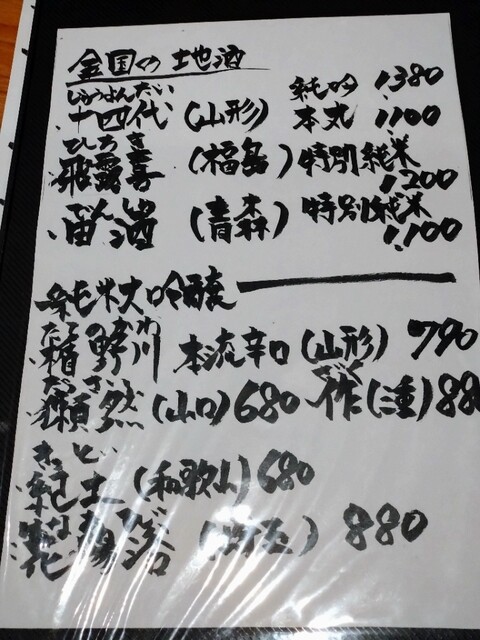 全国の地酒
じゅうよんだい 純吟 1380
十四代 (山形) 本丸 1,100
ひろき
飛露喜 (福島) 特別純米
1,200
でんしゅ
田酒 (青森) 特別純米
1,100
純米大吟醸
たてのかわ
楯野川 本流辛口 (山形) 790
だっさい ざく
獺祭 (山口) 680 作 (三重) 880
きっど
紀土 (和歌山) 680
はなようよく
花陽浴 (埼玉) 880